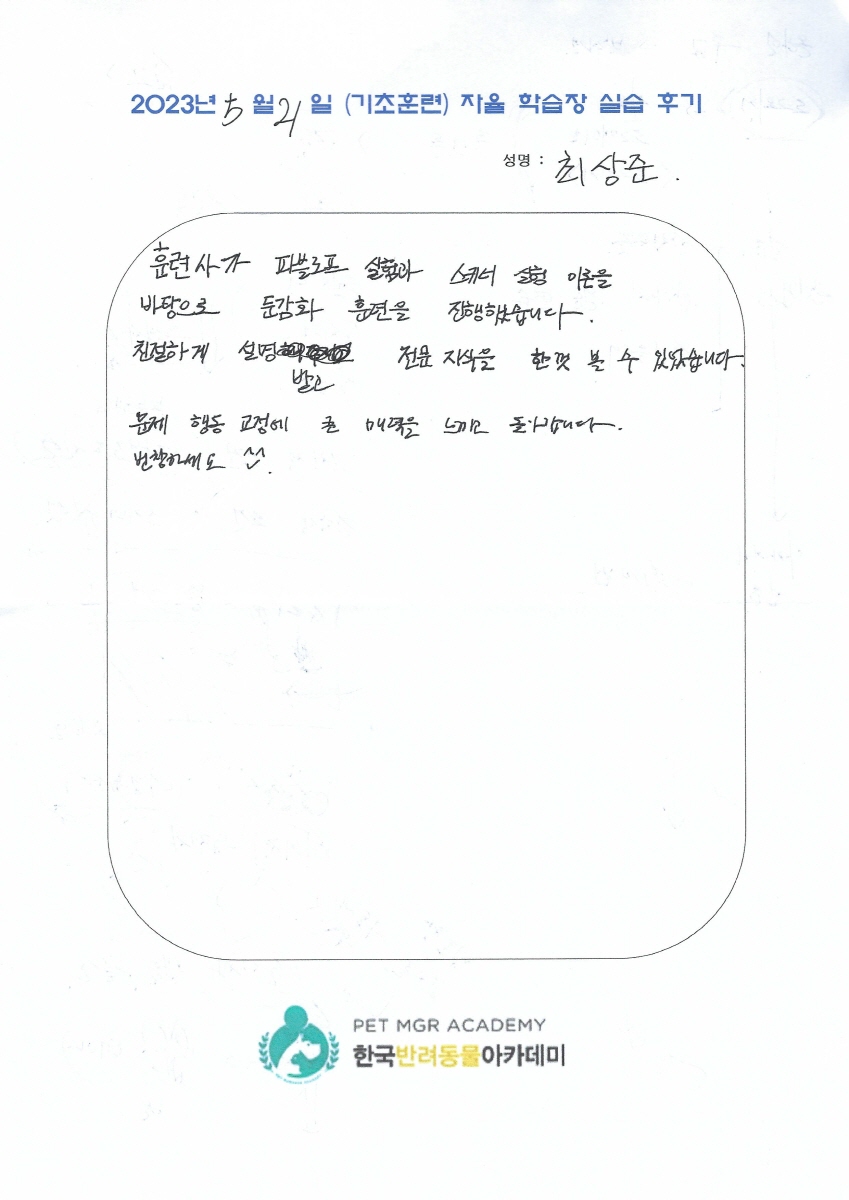 2023년 5월 21일 (기초훈련) 자율 학습장 실습 후기
성명 : 최상준 .
훈련사가 파블로프 실험과 스키너 실험 이론을
바탕으로 둔감화 훈련을 진행했습니다.
친절하게 설명 받고 전문 지식을 한껏 볼 수 있었습니다.
문제 행동 교정에 큰 매력을 느끼고 돌아갑니다.
번창하세요 ^^.
PET MGR ACADEMY
한국반려동물아카데미